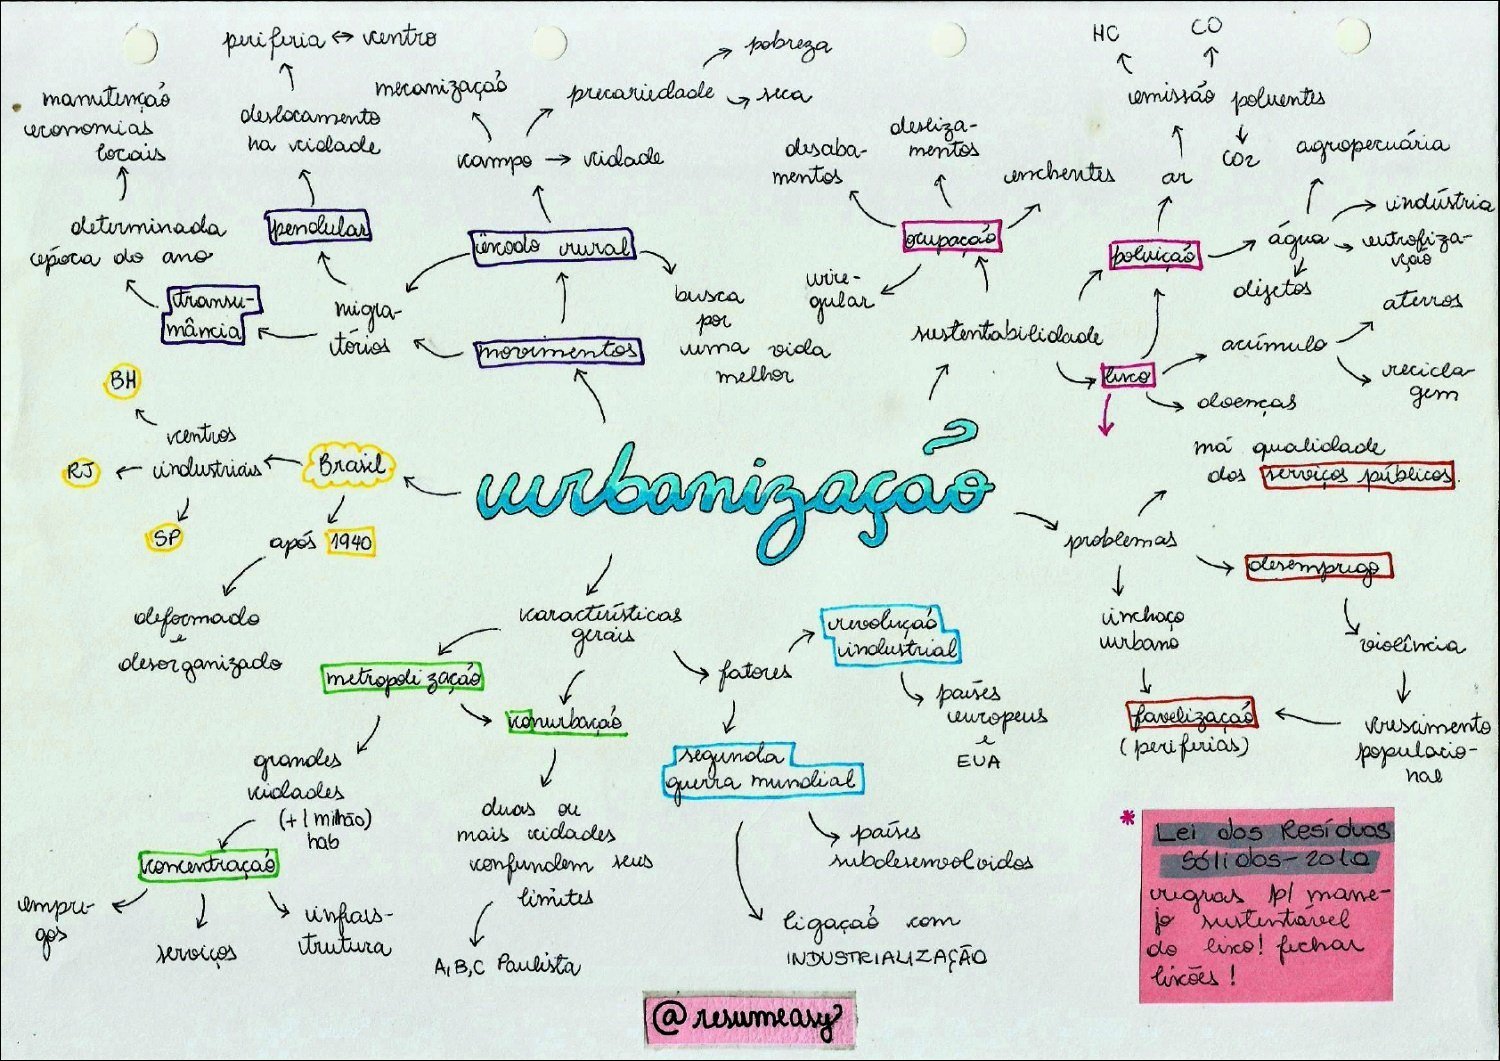 periferia ↔ centro
mecanização
precariedade
pobreza
seca
HC
CO
emissão poluentes
CO2
manutenção
economias
locais
deslocamento
na cidade
campo → cidade
desaba-
mentos
desliza-
mentos
enchentes
ar
agropecuária
determinada
época do ano
pendular
êxodo rural
ocupação
poluição
água
indústria
eutrofiza-
ção
dijetos
transu-
mância
migra-
tórios
movimentos
busca
por
uma vida
melhor
irre-
gular
sustentabilidade
lixo
acúmulo
aterros
recicla-
gem
doenças
BH
centros
industriais
RJ
SP
Brasil
após 1940
deformado
e
desorganizado
urbanização
má qualidade
dos serviços públicos.
problemas
desemprego
inchaço
urbano
violência
favelização
(periferias)
crescimento
populacio-
nal
características
gerais
metropolização
conurbação
fatores
revolução
industrial
países
europeus
e
EUA
segunda
guerra mundial
países
subdesenvolvidos
ligação com
INDUSTRIALIZAÇÃO
grandes
cidades
(+1 milhão)
hab
concentração
empre-
gos
serviços
infraes-
trutura
duas ou
mais cidades
confundem seus
limites
A,B,C Paulista
* Lei dos Resíduos
Sólidos-2010
regras p/ mane-
jo sustentável
do lixo! fechar
lixões!
@resumeasy